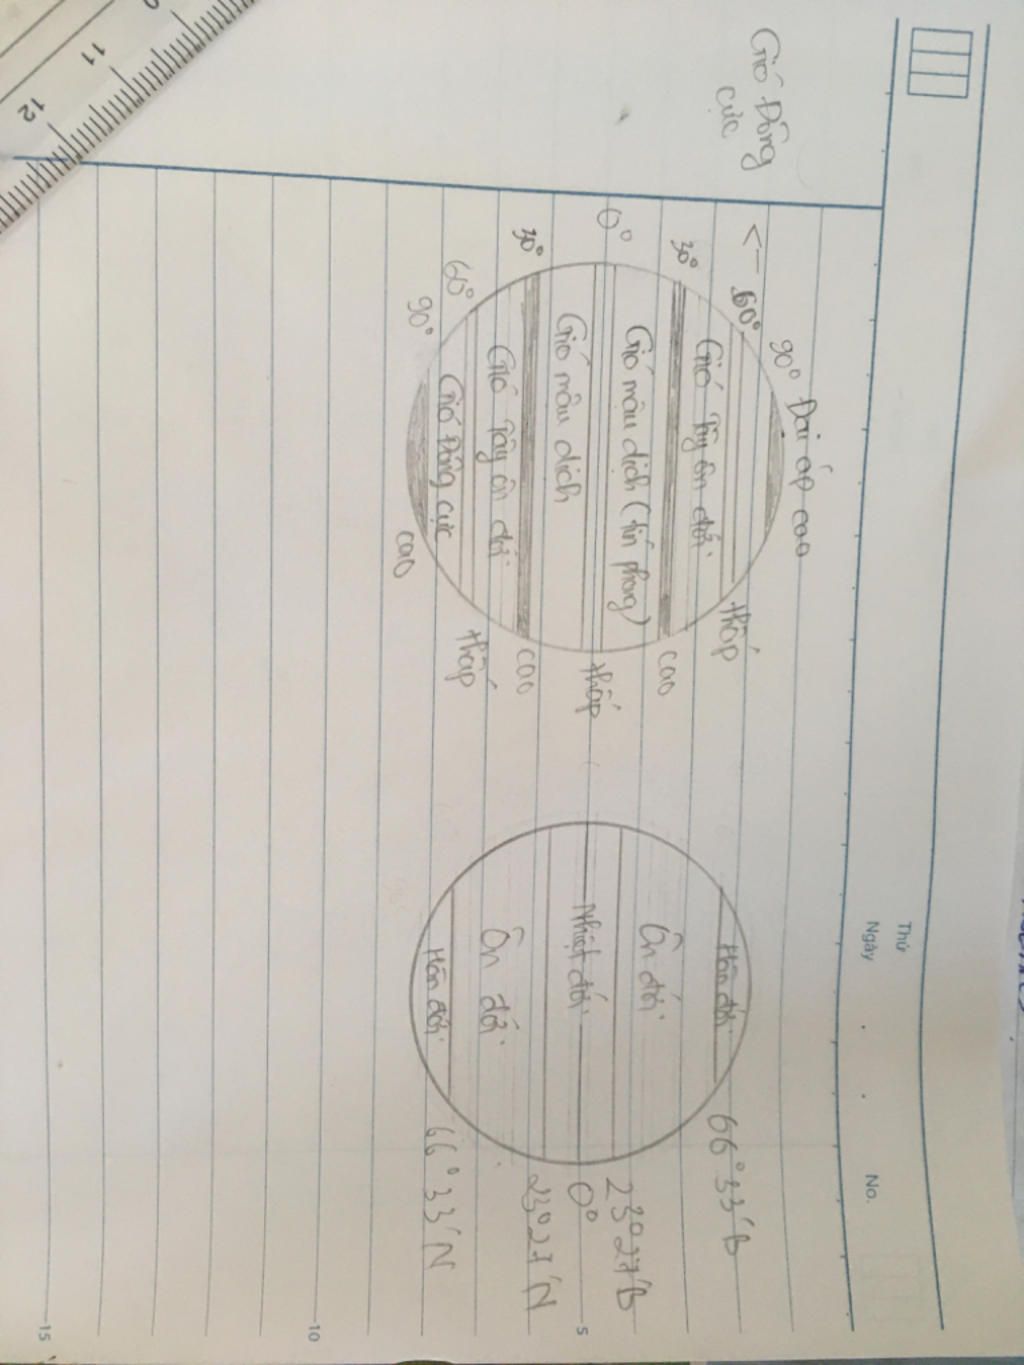 Thứ
Ngày . . No.
Gió Đông
cực
<-- 60°
90° Đai áp cao
Gió Tây ôn đới
thấp
30°
cao
Gió mậu dịch (tín phong)
0°
thấp
Gió mậu dịch
30°
cao
Gió Tây ôn đới
60°
thấp
Gió Đông cực
90°
cao
Hàn đới
66°33'B
Ôn đới
23°27'B
Nhiệt đới
0°
23°27'N
Ôn đới
Hàn đới
66°33'N
5
10
15
11
12